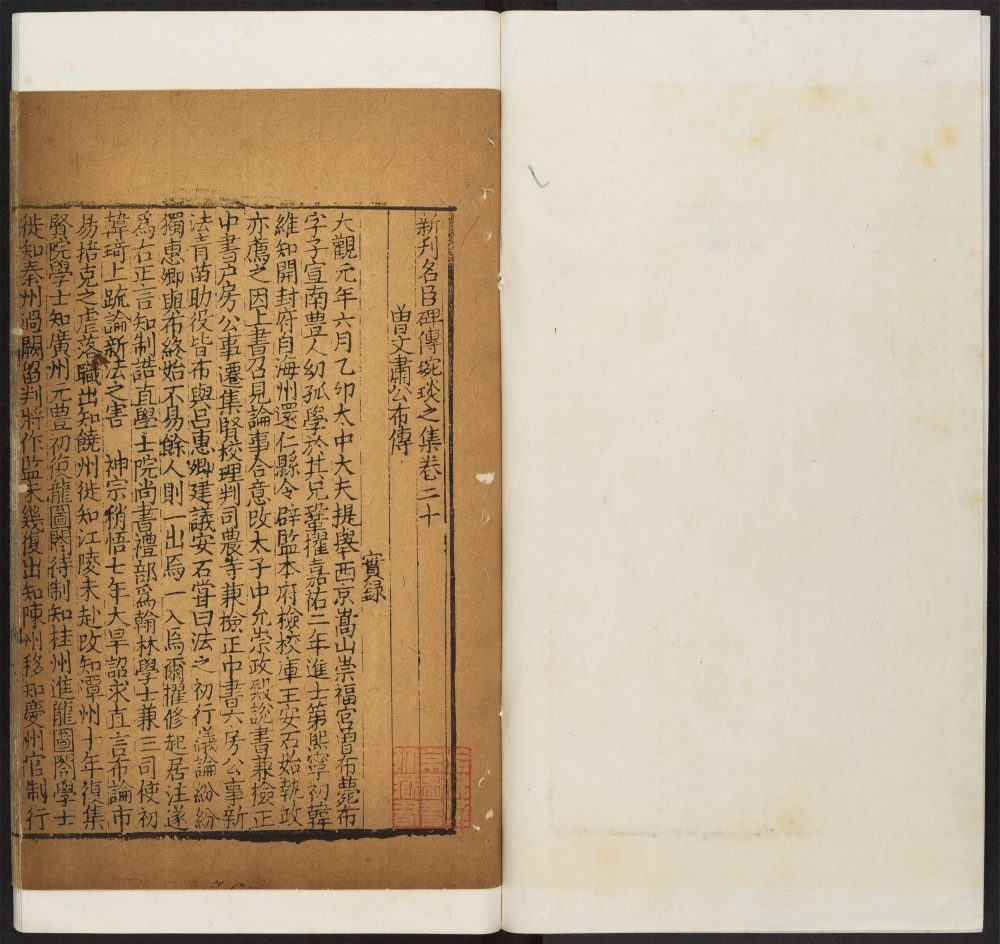 新刊名臣碑傳琬琰之集卷二十
曾文肅公布傳
實録
大觀元年六月乙卯太中大夫提舉西京嵩山崇福宫曾布薨布
字子宣南豊人幼孤學於其兄鞏擢嘉祐二年進士第熙寧初韓
維知開封府自海州還仁縣令辟監本府檢校庫王安石始執政
亦薦之因上書召見論事合意改太子中允崇政殿說書兼檢正
中書户房公事遷集賢校理判司農寺兼檢正中書六房公事新
法青苗助役皆布與吕惠卿建議安石甞曰法之初行議論紛紛
獨惠卿與布終始不易餘人則一出焉一入焉爾擢修起居注遂
爲右正言知制誥直學士院尚書禮部爲翰林學士兼三司使初
韓琦上疏論新法之害 神宗稍悟七年大旱詔求直言布論市
易掊克之虐落職出知饒州徙知江陵未赴改知潭州十年復集
賢院學士知廣州元豊初復龍圖閣待制知桂州進龍圖閣學士
徙知秦州過闕留判將作監未幾復出知陳州移知慶州官制行